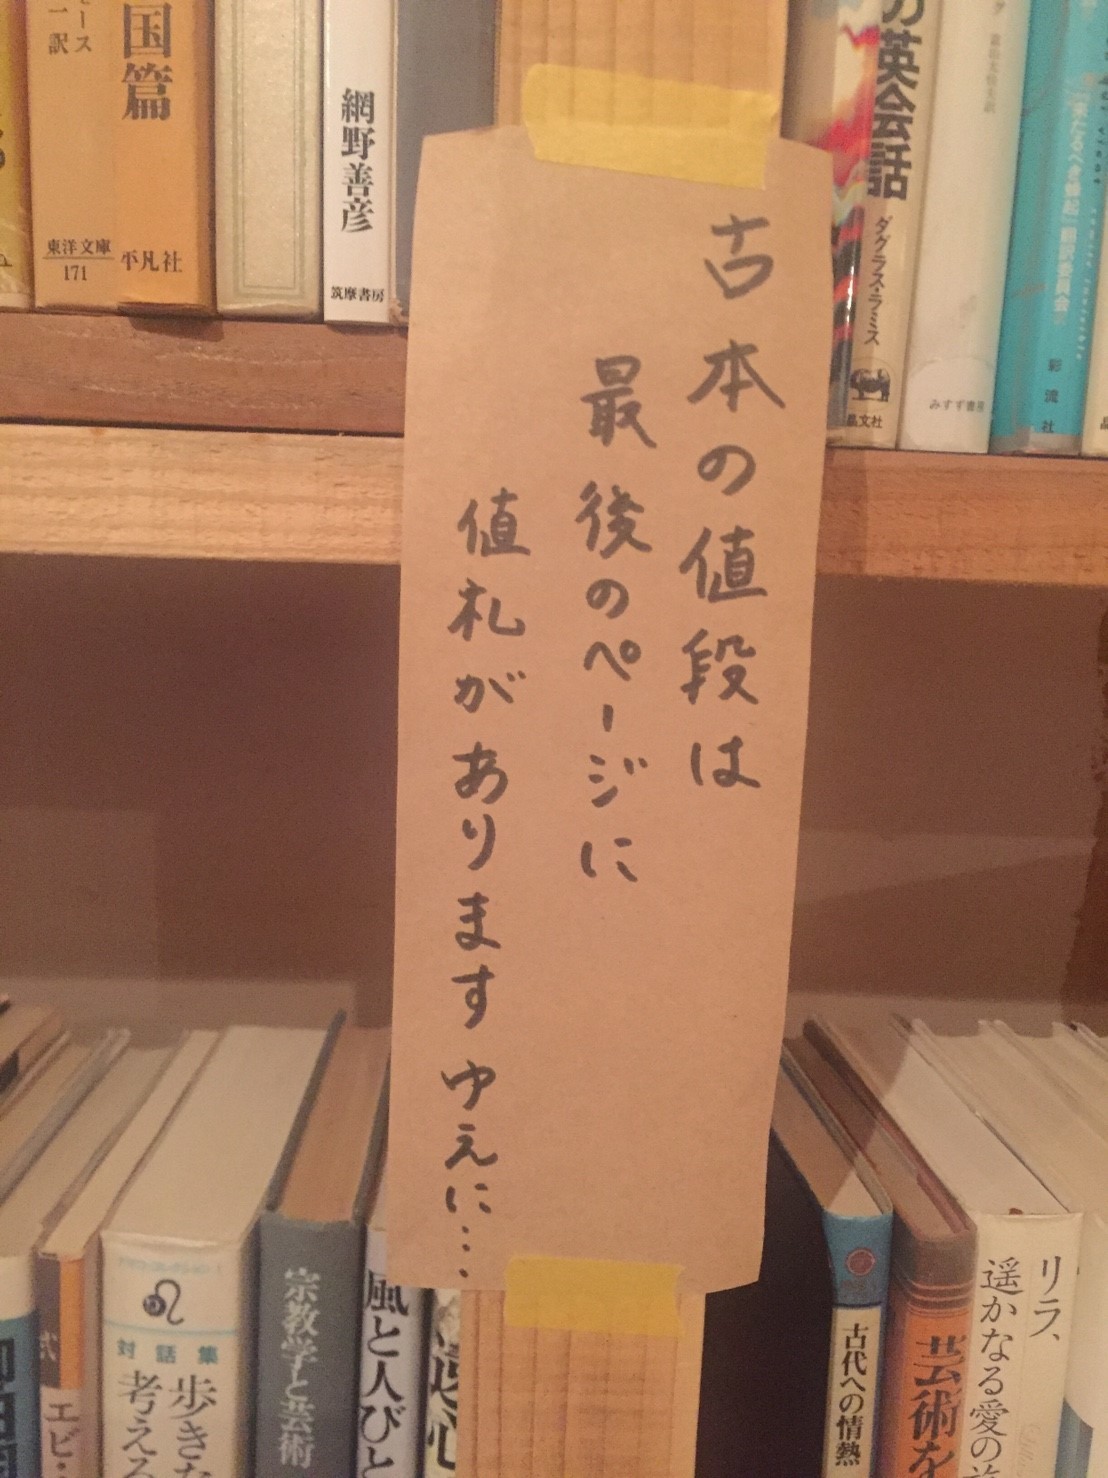 古本の値段は
最後のページに
値札があります ゆえに…
国篇
一訳
東洋文庫
171
平凡社
網野善彦
筑摩書房
英会話
ダグラス・ラミス
晶文社
みすず書房
「来たるべき蜂起」翻訳委員会
彩流社
エビ・
対話集
歩きな
考える
宗教学と芸術
風と人びと
古代への情熱
芸術を
リラ、
遥かなる愛の